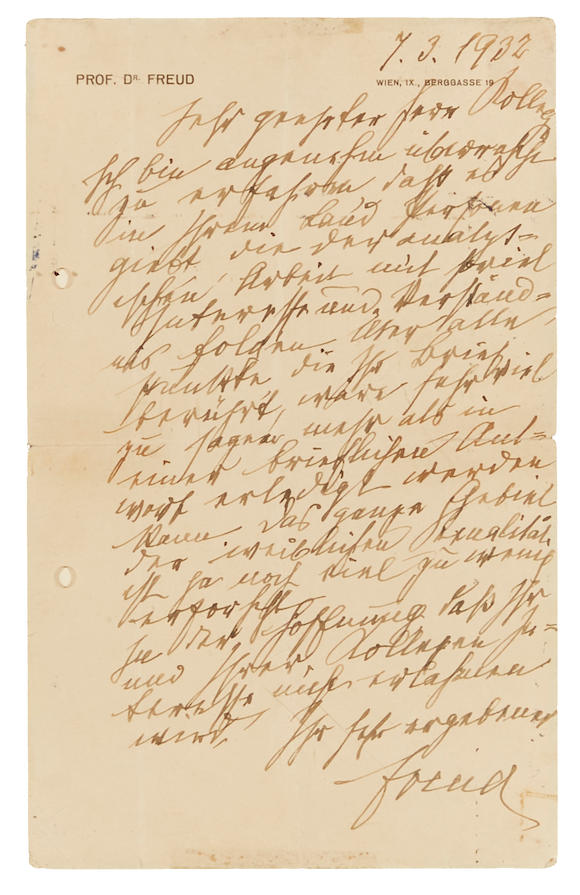 7. 3. 1932
PROF. DR. FREUD
WIEN, IX., BERGGASSE 19
Sehr geehrter Herr Kollege
Ich bin angenehm überrascht
zu erfahren daß es
in Ihrem Land Personen
giebt, die der analyt=
ischen Arbeit mit soviel
Interesse und Verständ=
nis folgen. Über alle
Punkte die Ihr Brief
berührt, wäre sehr viel
zu sagen mehr als in
einer brieflichen Ant=
wort erledigt werden
kann. Das ganze Gebiet
der weiblichen Sexualität
ist ja noch viel zu wenig
erforscht.
In der Hoffnung daß Ihr
und Ihrer Kollegen In=
teresse nicht erlahmen
wird
Ihr sehr ergebener
Freud